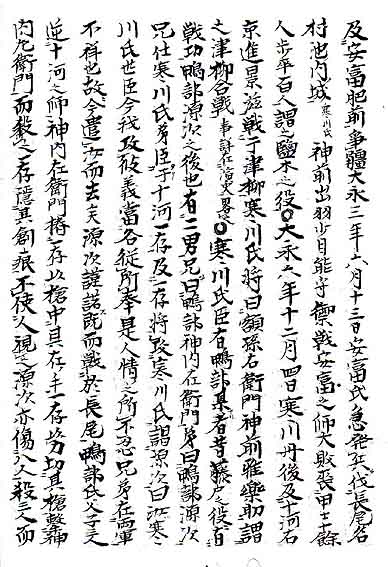 及安富肥前爭疆大永三年六月十三日安富氏急發兵伐長尾名
村池内城寒川氏神前出羽少目能守禦戰安富之師大敗喪甲士十餘
人步卒百人謂之鹽木之役〇大永六年十二月四日寒川丹後及十河石
京進景滋戰于津柳寒川氏將曰額孫右衛門神前雅樂助謂
之津柳合戰〇寒川氏臣有鴨部某者昔藤尾役有
戰功鴨部源次之後也有二男兄曰鴨部神内左衛門弟曰鴨部源次
兄仕寒川氏弟臣于十河一存及一存將攻寒川氏謂源次曰汝寒
川氏世臣今我攻彼義當各從所奉是人情之所不忍兄弟在両軍
不祥也故令遣汝而去矣源次謹諾既而戰於長尾鴨部氏父子
逆十河之師神内左衛門搢一存以槍中其在手一存
内左衛門而殺之一存隱其創痕不使人視之源次亦傷入人殺三人而